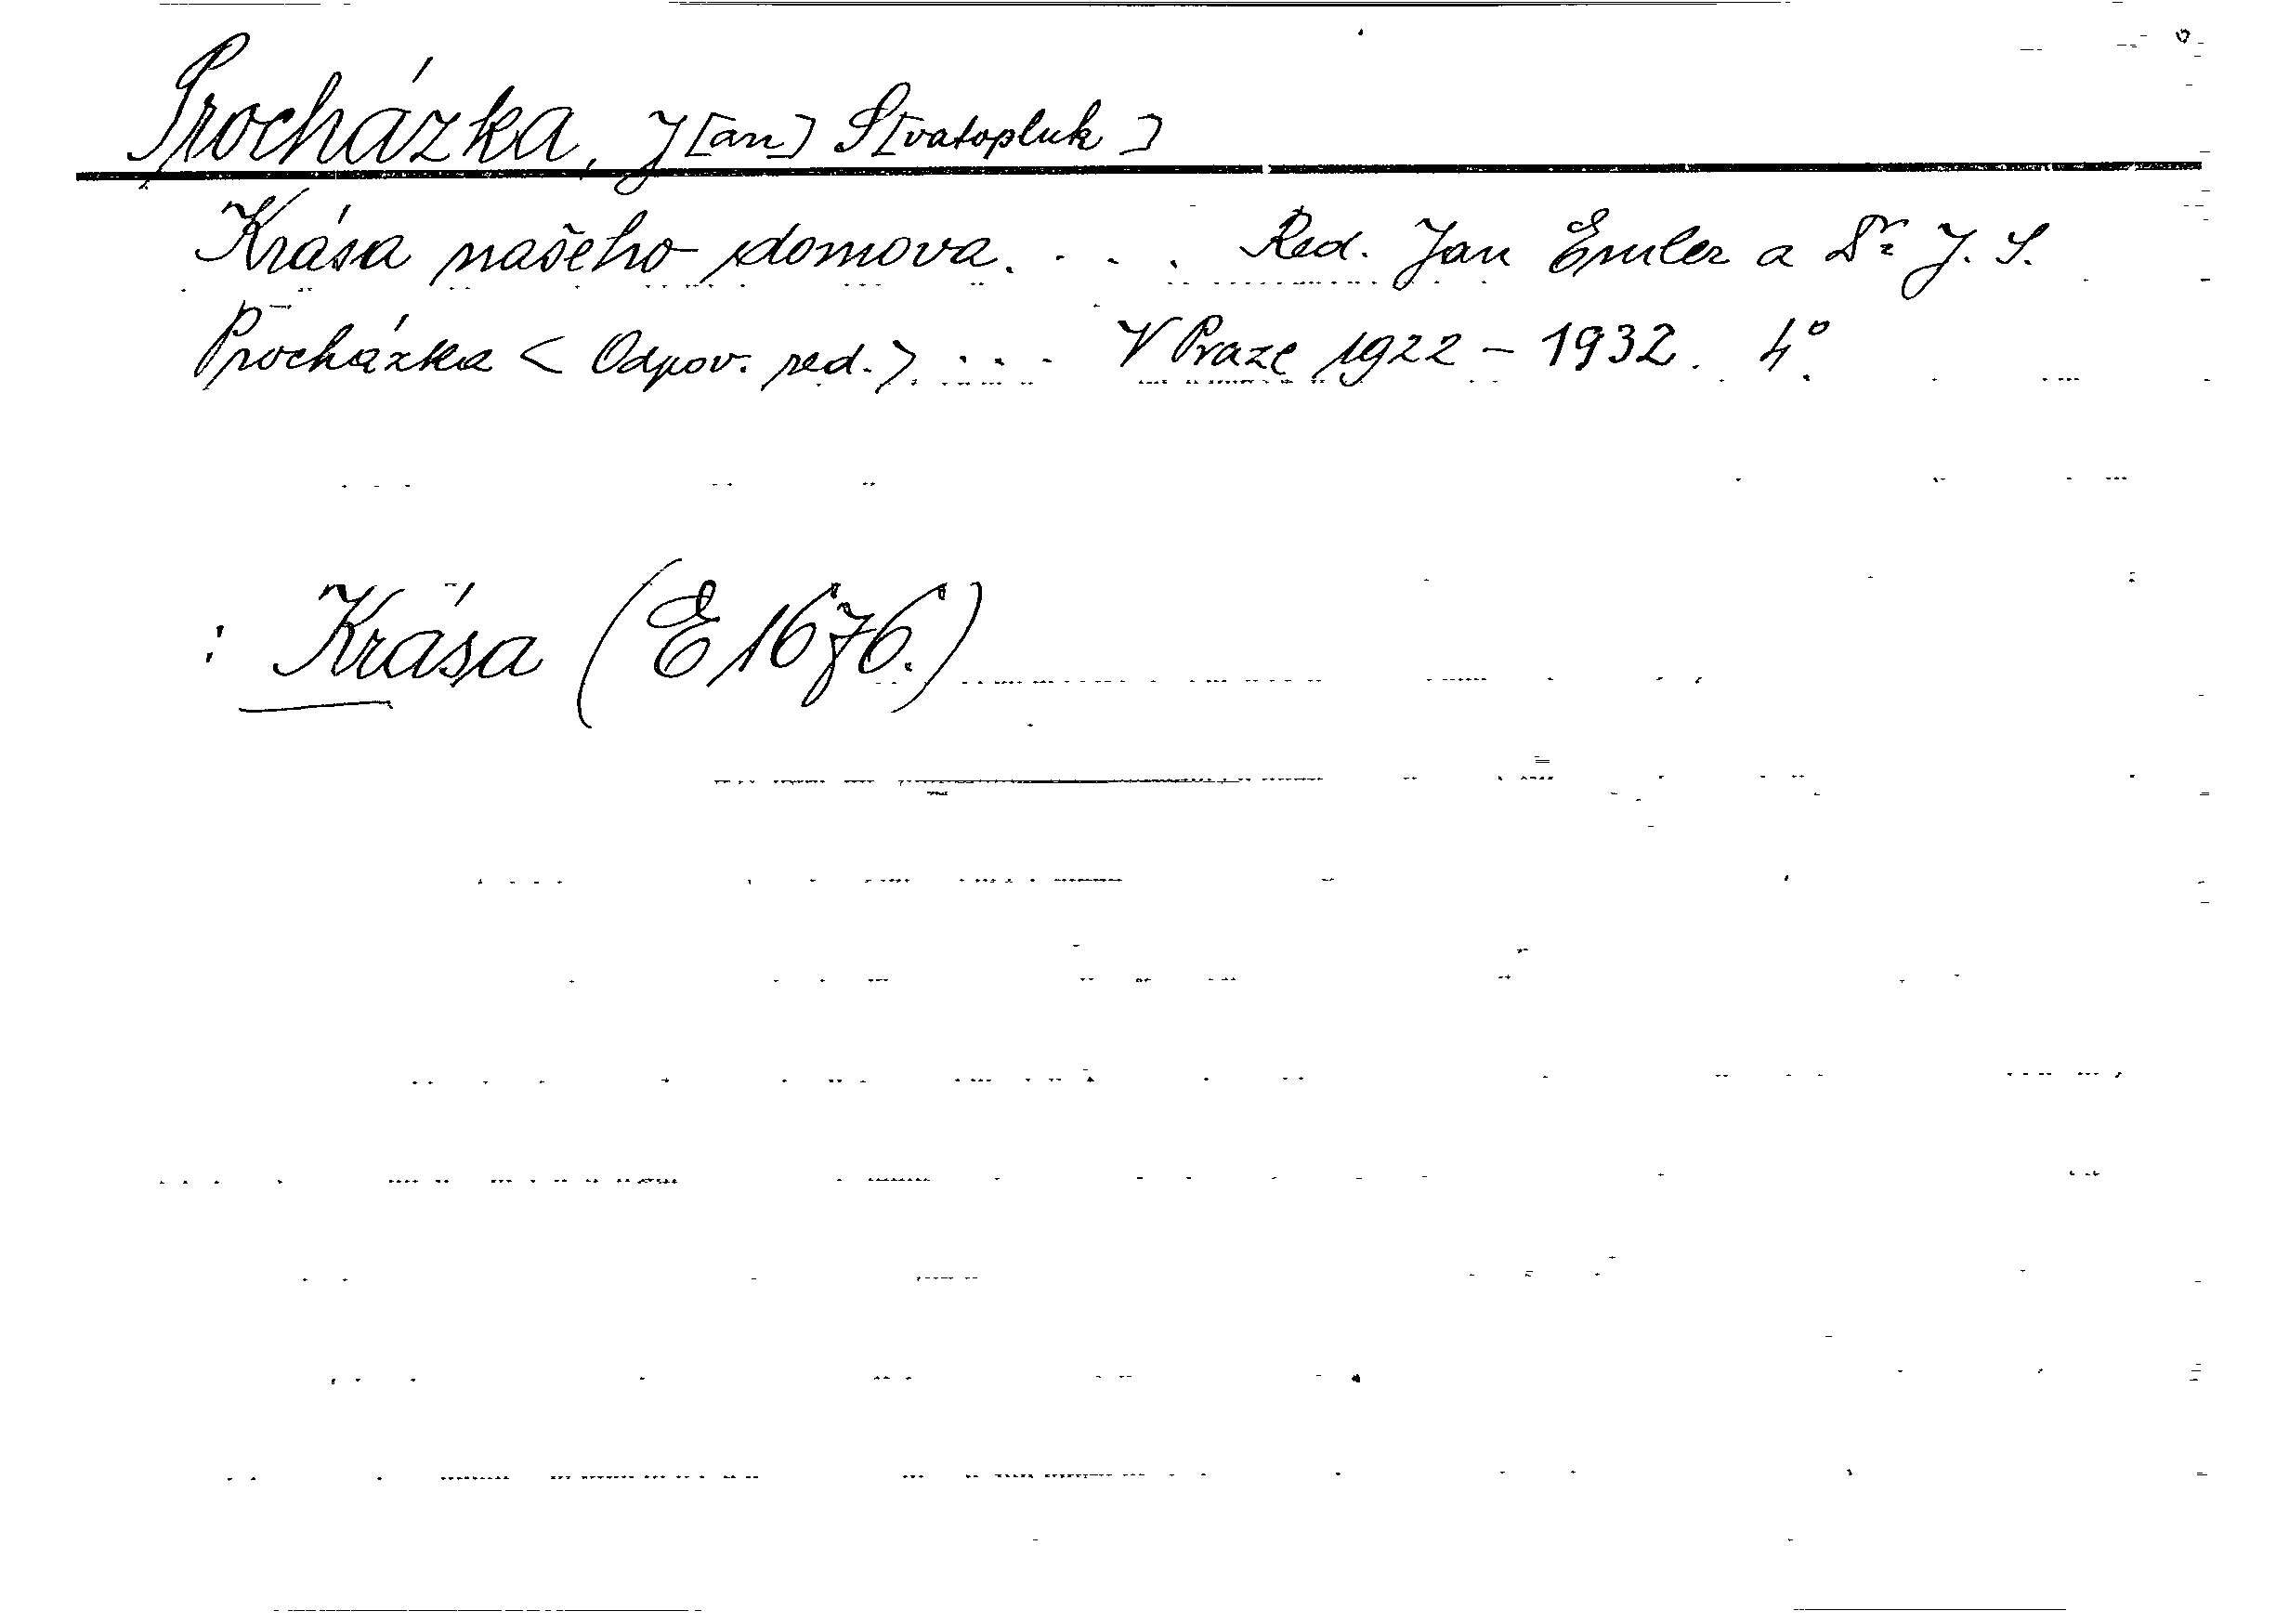 Procházka, J[an] S[vatopluk]
Krása našeho domova. . . . Red. Jan Emler a Dr J. S.
Procházka < Odpov. red. > . . . V Praze 1922 – 1932. 4°.
: Krása (E 1676.)